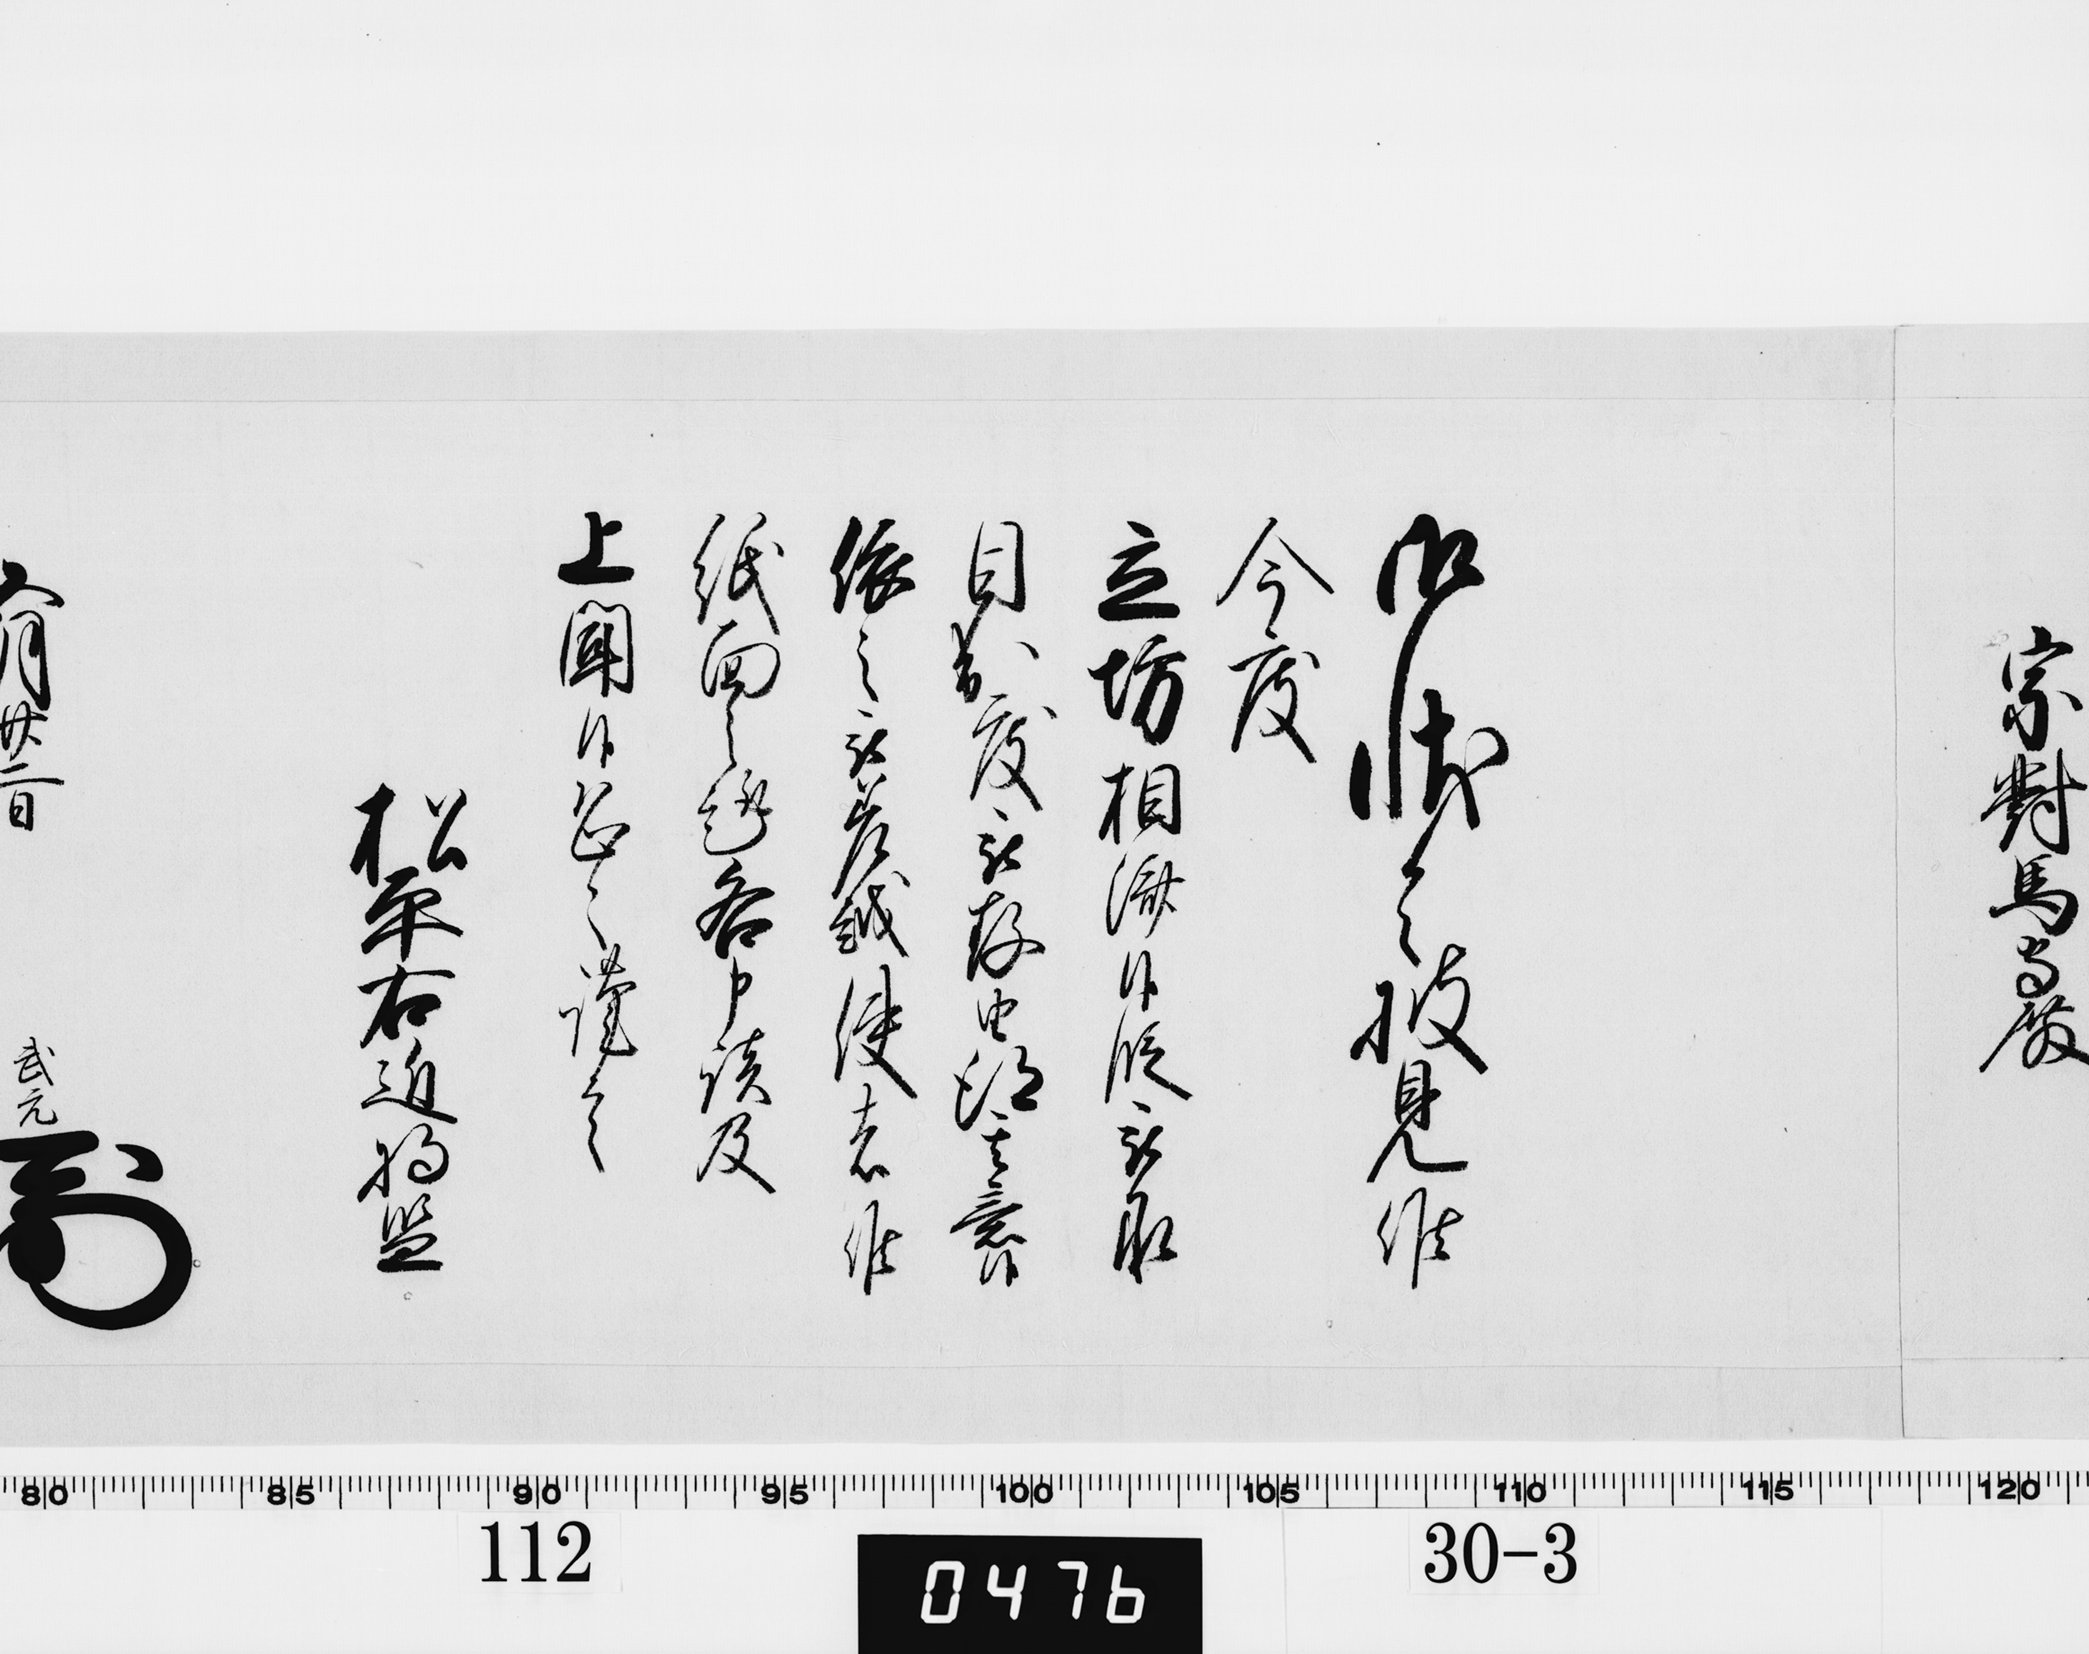 宗對馬守殿
御状令披見候
今度
立坊相済候段被承
目出度被存由得其意候
依之被差越使者候
紙面之趣各申談及
上聞候恐々謹言
松平右近将監
六月廿二日 武元
80 85 90 95 100 105 110 115 120
112 0476 30-3